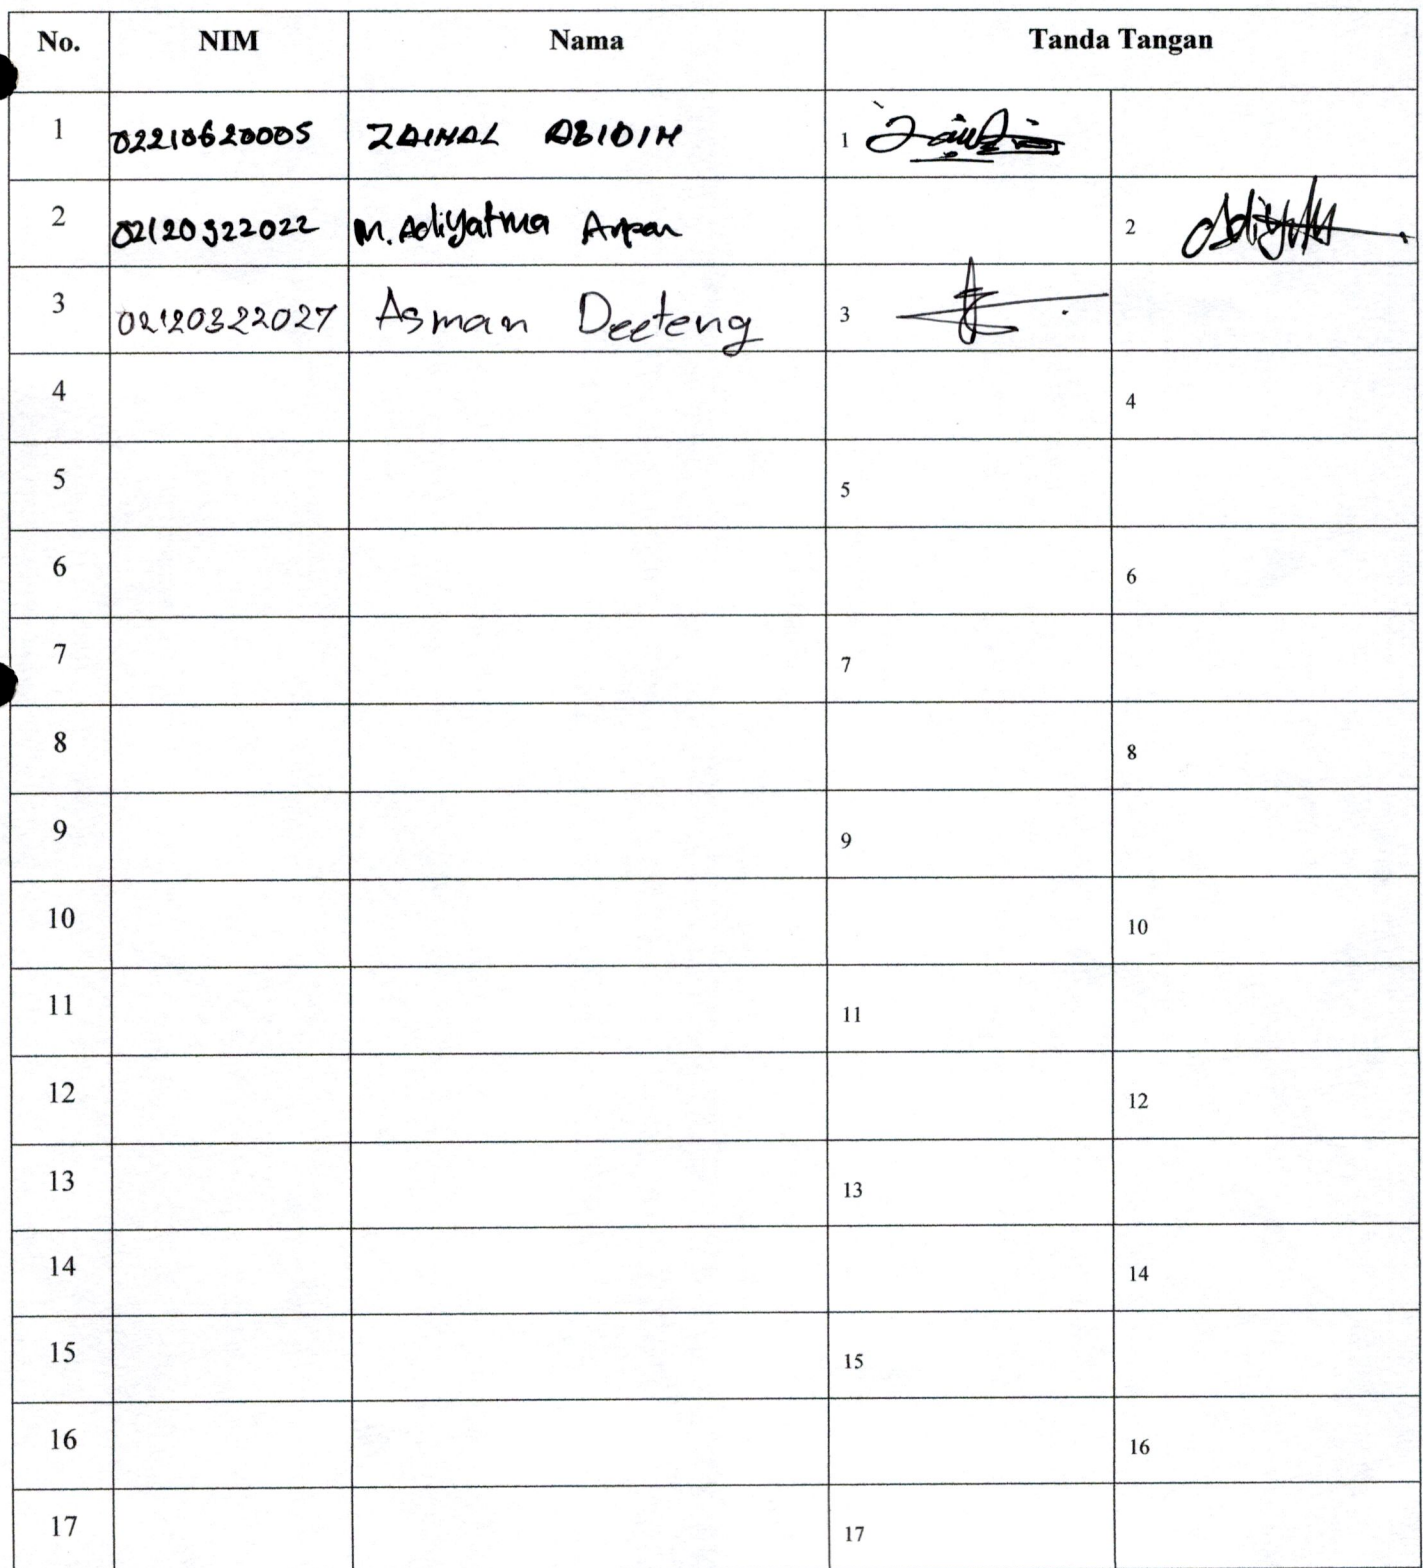 No. NIM Nama Tanda Tangan
1 02210620005 ZAINAL ABIDIN 1
2 02120322022 M. Adiyatma Arpan 2
3 02120322027 Asman Deeteng 3
4 4
5 5
6 6
7 7
8 8
9 9
10 10
11 11
12 12
13 13
14 14
15 15
16 16
17 17